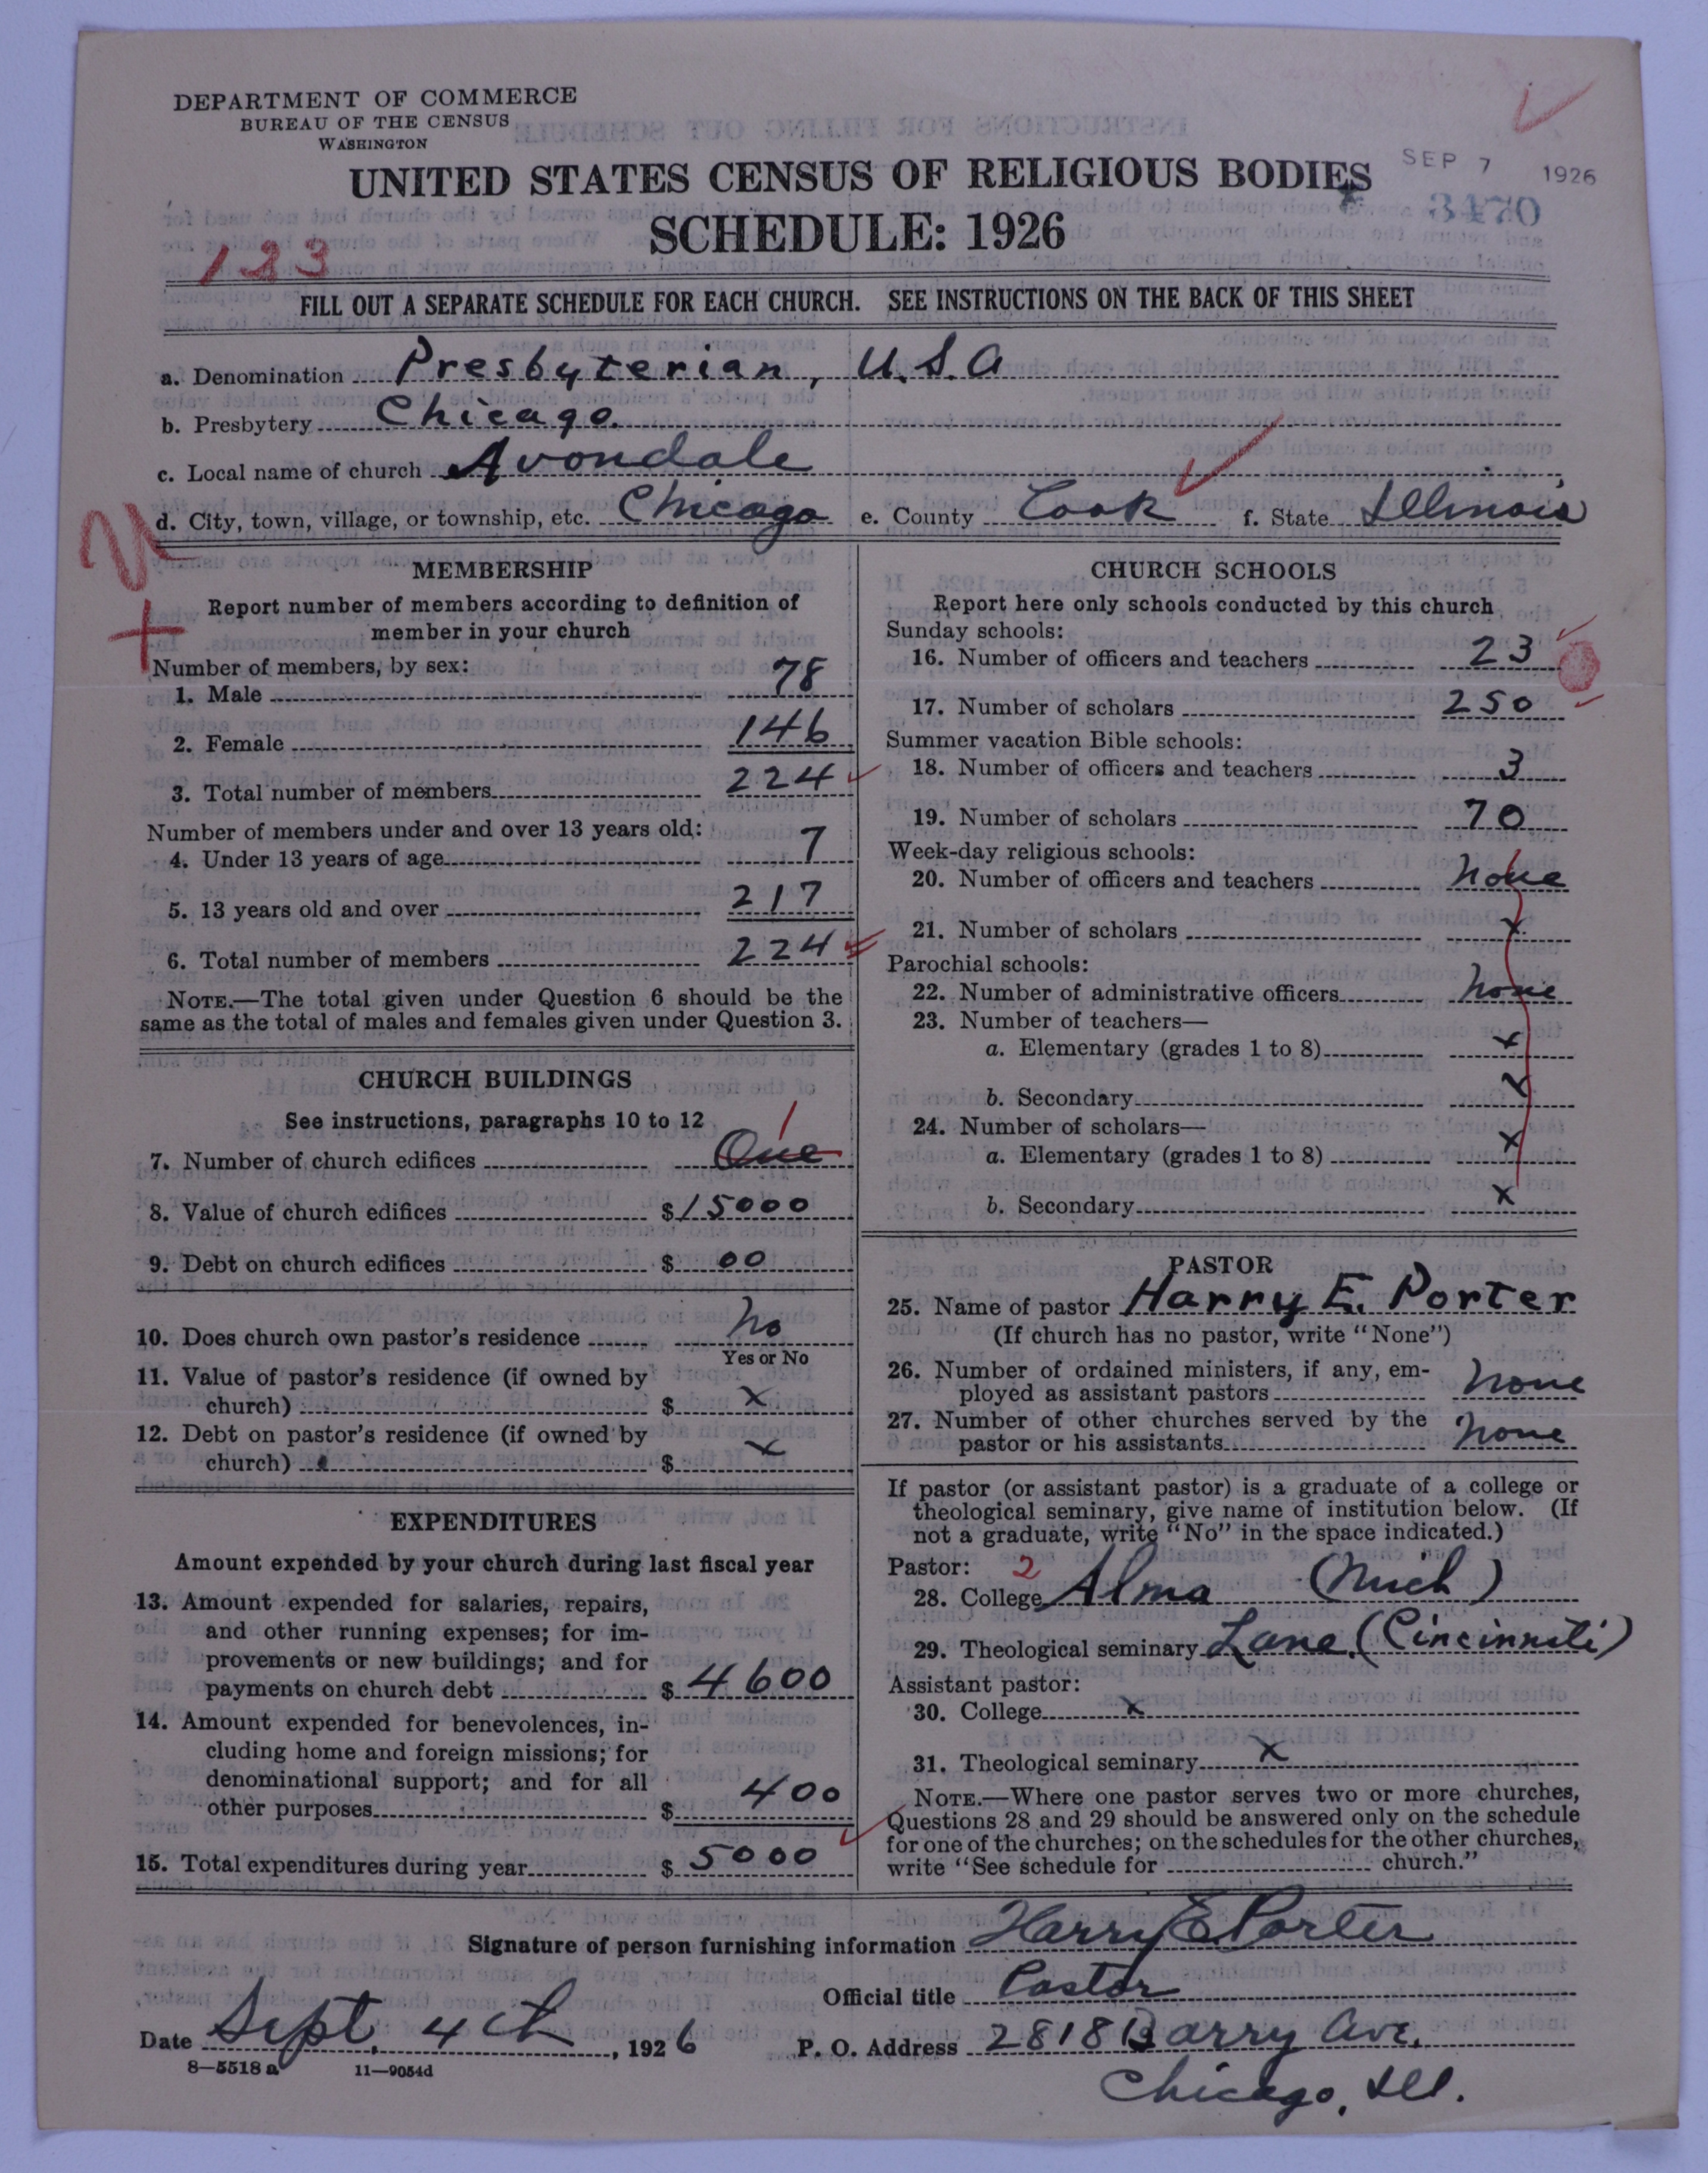 DEPARTMENT OF COMMERCE
BUREAU OF THE CENSUS
WASHINGTON
UNITED STATES CENSUS OF RELIGIOUS BODIES
SEP 7 1926
3470
SCHEDULE: 1926
123
FILL OUT A SEPARATE SCHEDULE FOR EACH CHURCH. SEE INSTRUCTIONS ON THE BACK OF THIS SHEET
a. Denomination Presbyterian, U.S.A
b. Presbytery Chicago.
c. Local name of church Avondale
d. City, town, village, or township, etc. Chicago e. County Cook f. State Illinois
MEMBERSHIP
Report number of members according to definition of
member in your church
Number of members, by sex:
1. Male 78
2. Female 146
3. Total number of members 224
Number of members under and over 13 years old:
4. Under 13 years of age 7
5. 13 years old and over 217
6. Total number of members 224
NOTE.—The total given under Question 6 should be the
same as the total of males and females given under Question 3.
CHURCH BUILDINGS
See instructions, paragraphs 10 to 12
1
7. Number of church edifices One
8. Value of church edifices $15000
9. Debt on church edifices $ 00
10. Does church own pastor's residence No
Yes or No
11. Value of pastor's residence (if owned by
church) $ x
12. Debt on pastor's residence (if owned by
church) $ x
EXPENDITURES
Amount expended by your church during last fiscal year
13. Amount expended for salaries, repairs,
and other running expenses; for im-
provements or new buildings; and for
payments on church debt $ 4600
14. Amount expended for benevolences, in-
cluding home and foreign missions; for
denominational support; and for all
other purposes $ 400
15. Total expenditures during year $ 5000
CHURCH SCHOOLS
Report here only schools conducted by this church
Sunday schools:
16. Number of officers and teachers 23
17. Number of scholars 250
Summer vacation Bible schools:
18. Number of officers and teachers 3
19. Number of scholars 70
Week-day religious schools:
20. Number of officers and teachers None
21. Number of scholars x
Parochial schools:
22. Number of administrative officers None
23. Number of teachers—
a. Elementary (grades 1 to 8) x
b. Secondary x
24. Number of scholars—
a. Elementary (grades 1 to 8) x
b. Secondary x
PASTOR
25. Name of pastor Harry E. Porter
(If church has no pastor, write "None")
26. Number of ordained ministers, if any, em-
ployed as assistant pastors None
27. Number of other churches served by the
pastor or his assistants None
If pastor (or assistant pastor) is a graduate of a college or
theological seminary, give name of institution below. (If
not a graduate, write "No" in the space indicated.)
Pastor: 2
28. College Alma (Mich)
29. Theological seminary Lane (Cincinnati)
Assistant pastor:
30. College x
31. Theological seminary x
NOTE.—Where one pastor serves two or more churches,
Questions 28 and 29 should be answered only on the schedule
for one of the churches; on the schedules for the other churches,
write "See schedule for church."
Signature of person furnishing information Harry E Porter
Official title Pastor
Date Sept. 4th, 1926 P. O. Address 2818 Barry Ave.
8—5518 a 11—9054d
Chicago, Ill.